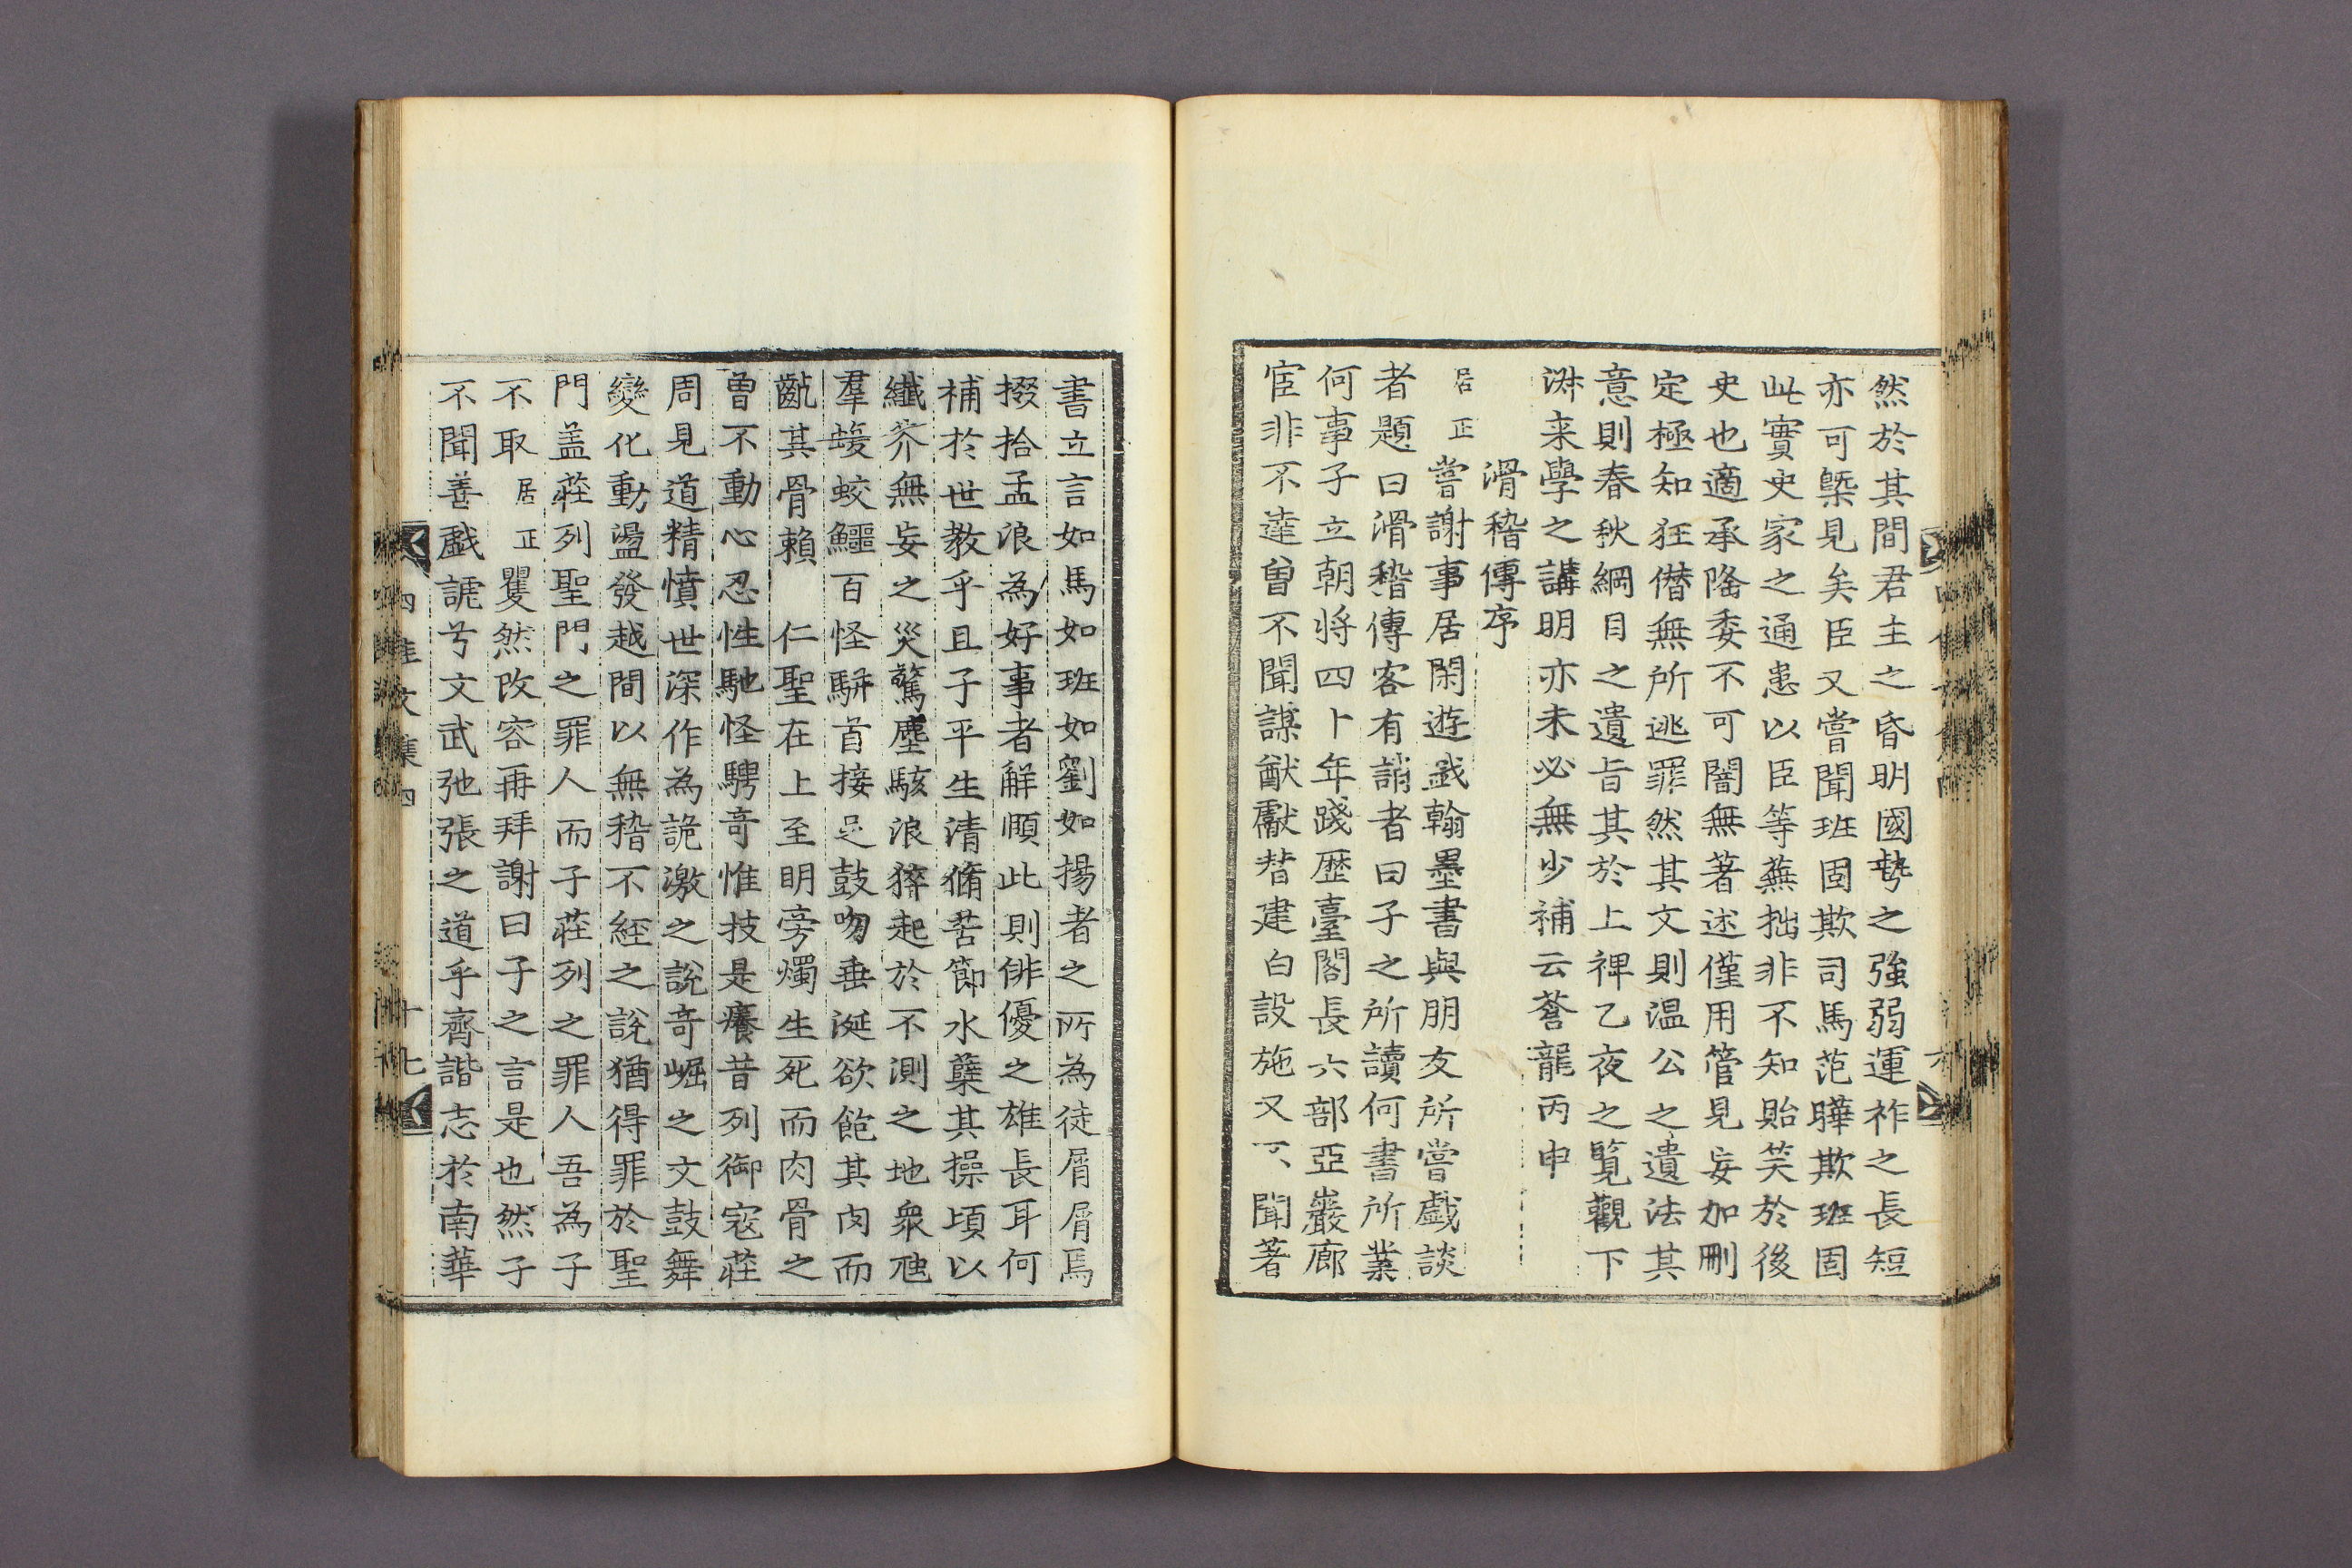 然於其間君主之昏明國勢之強弱運祚之長短
亦可槩見矣臣又嘗聞班固欺司馬范曄欺班固
此實史家之通患以臣等蕪拙非不知貽笑於後
史也適承隆委不可闇無著述僅用管見妄加刪
定極知狂僭無所逃罪然其文則温公之遺法其
意則春秋綱目之遺旨其於上裨乙夜之覽觀下
淋来學之講明亦未必無少補云蒼龍丙申
滑稽傳序
居正嘗謝事居閑遊戱翰墨書與朋友所嘗戱談
者題曰滑稽傳客有誚者曰子之所讀何書所業
何事子立朝将四十年踐歷臺閣長六部亞巖廊
宦非不達曽不聞謀猷獻替建白設施又不聞著
書立言如馬如班如劉如揚者之所為徒屑屑焉
掇拾孟浪為好事者觧頤此則俳優之雄長耳何
補於世教乎且子平生清脩苦節水蘗其操頃以
纎芥無妄之災驚塵駭浪猝起於不測之地衆虺
羣蝮蛟鱷百怪駢首接足鼓吻垂涎欲飽其肉而
齓其骨賴 仁聖在上至明旁燭生死而肉骨之
曽不動心忍性馳怪騁奇惟技是癢昔列御寇莊
周見道精憤世深作為詭激之說奇崛之文鼓舞
變化動盪發越間以無稽不經之說猶得罪於聖
門盖莊列聖門之罪人而子莊列之罪人吾為子
不取居正瞿然改容再拜謝曰子之言是也然子
不聞善戱謔兮文武弛張之道乎齊諧志於南華
四佳文集四
十七